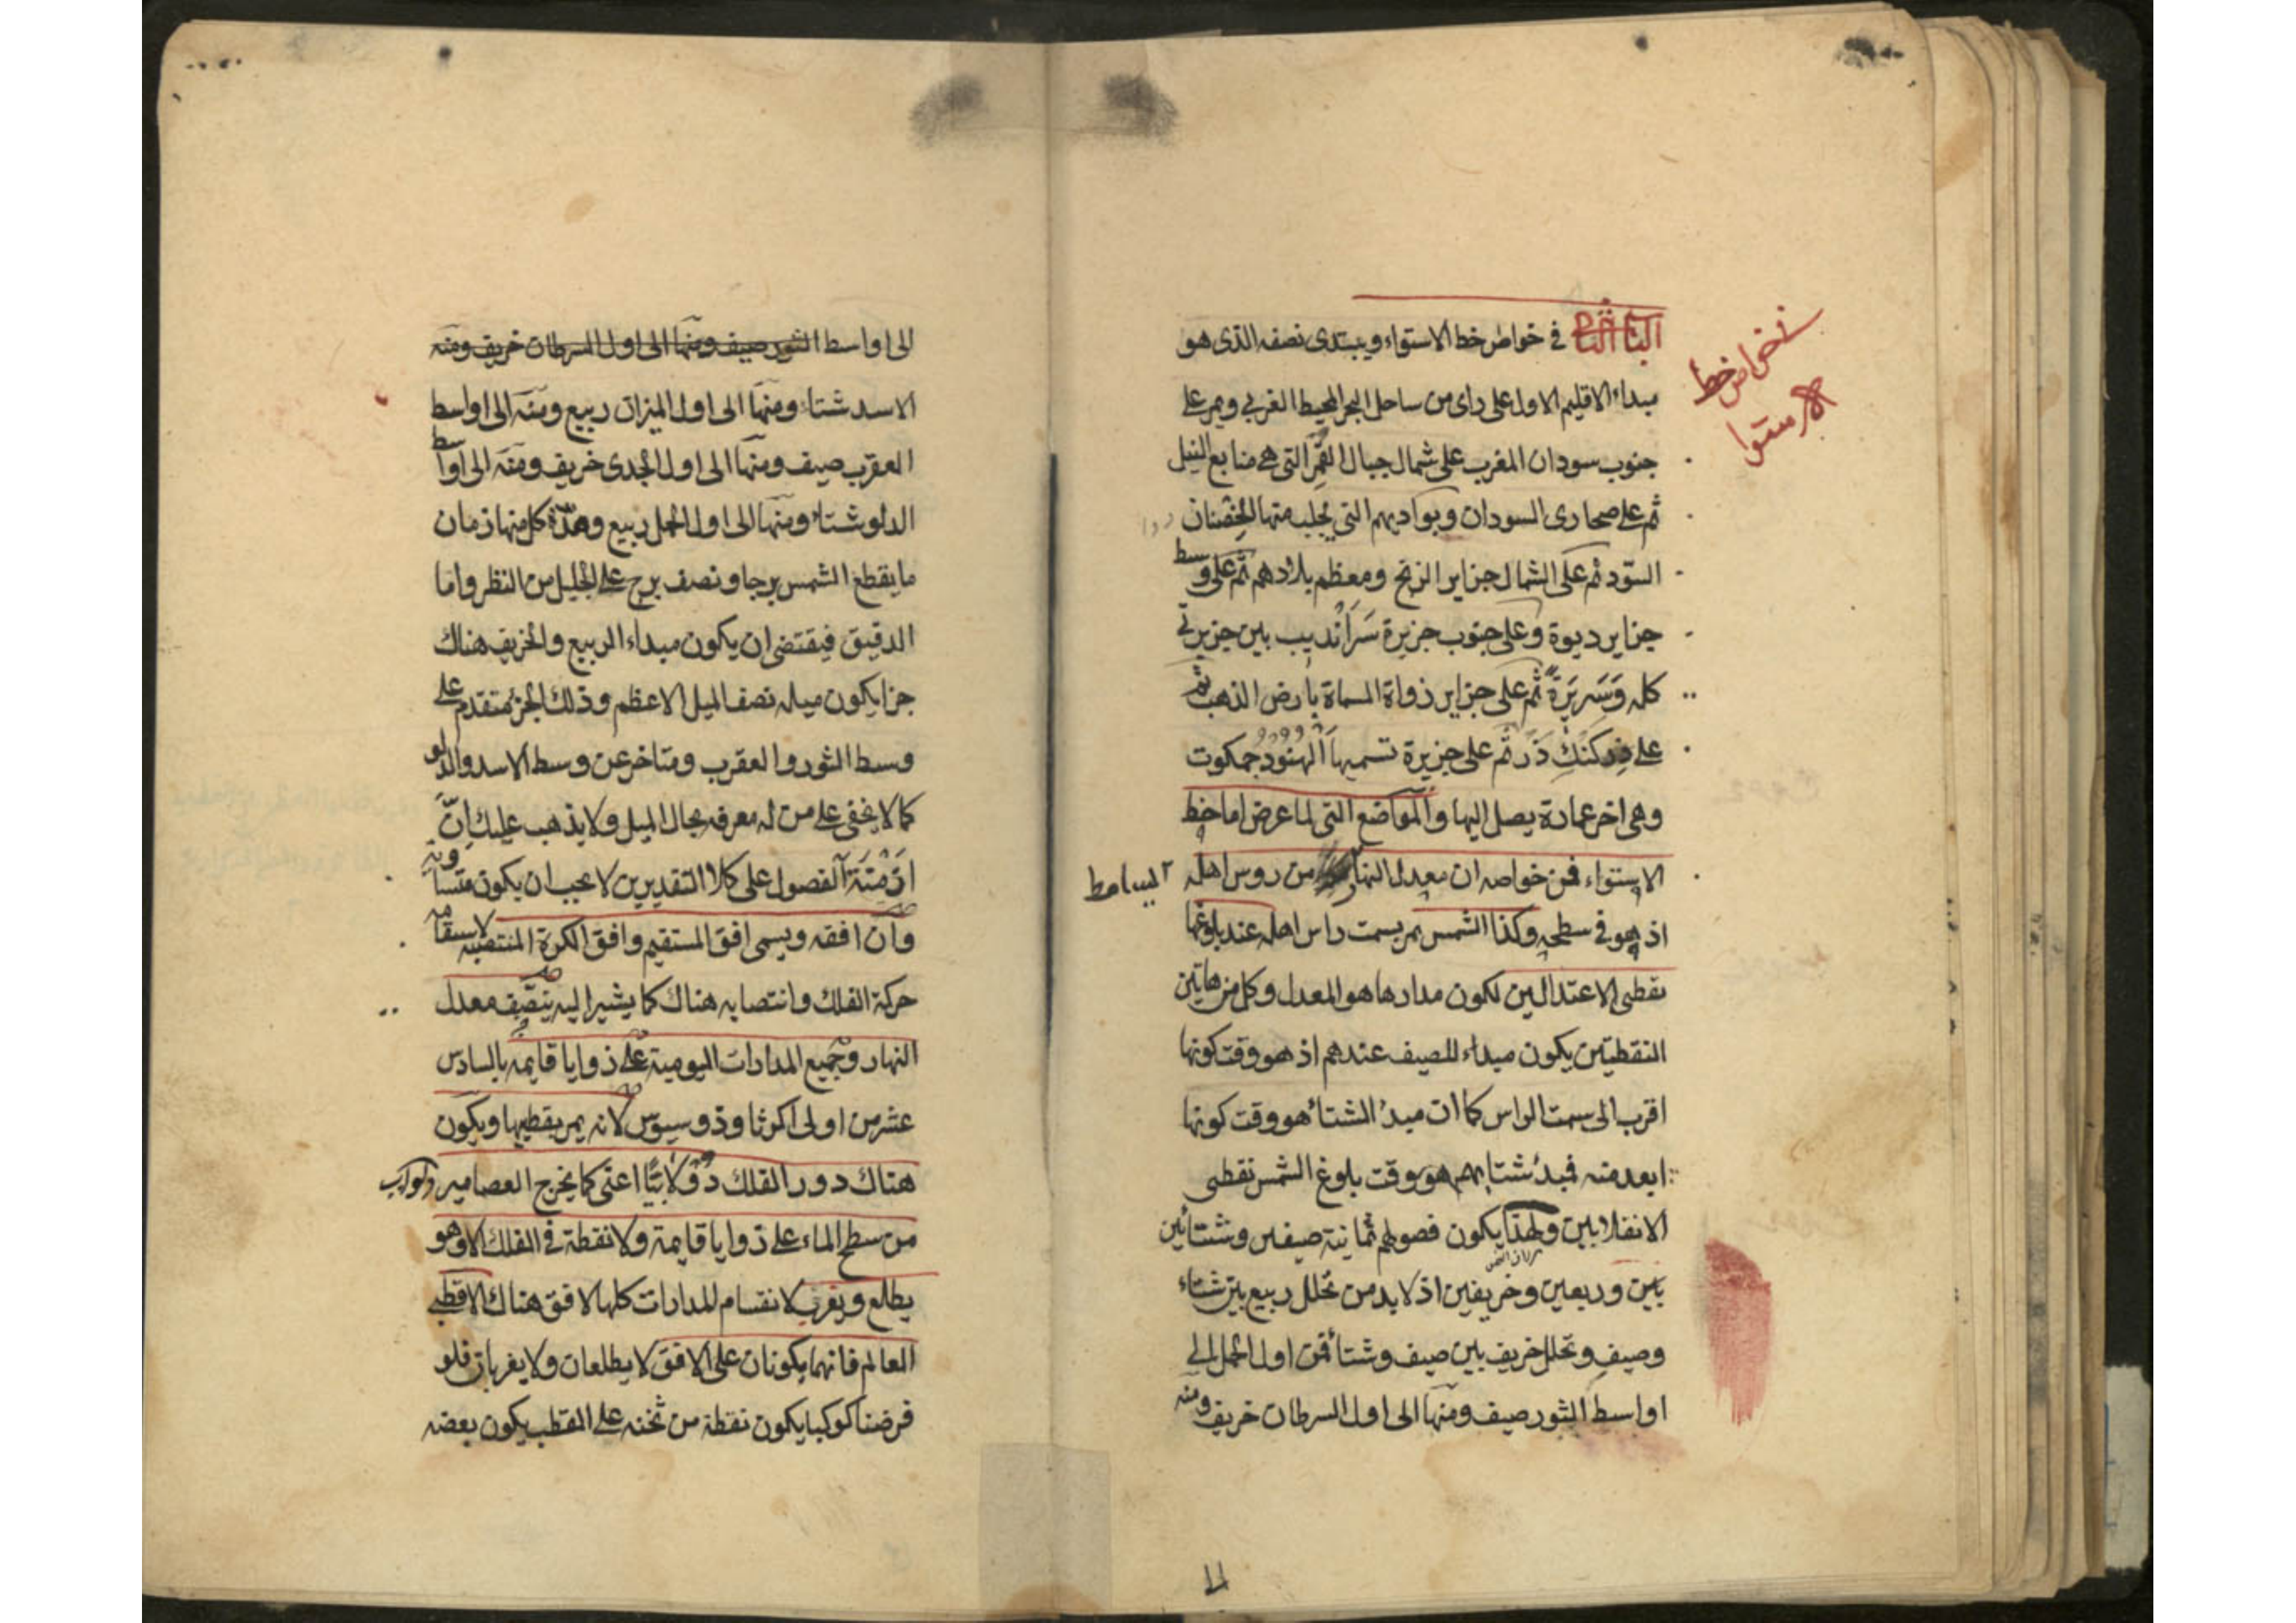 في خواص خط الاستواء ويبتدى نصفه الذى هو
مبداء الاقليم الاول على راى من ساحل البحر المحيط الغربي ويمر على
جنوب سودان المغرب على شمال جبال القمر التى هى منابع النيل
ثم على صحارى السودان وبواديهم التى يجلب منها الخصيان
السود ثم على الشمال جزاير الزنج ومعظم بلادهم ثم على وسط
جزاير ديوة وعلى جنوب جزيرة سَرَانْديب بين جزيرتى
كله وَسَرِيَرَةٌ ثم على جزاير زواة المسماة بارض الذهب ثم
على ثم على جزيرة تسميها الهنود جمكوت
وهى اخر عمارة يصل اليها والمواضع التى لها عرض اما خط
الاستواء فمن خواصه ان معدل النهار من روس اهله
اذ هو فى سطحه وكذا الشمس يمر بسمت راس اهله عند بلوغها
نقطتى الاعتدالين لكون مدارها هو المعدل وكل من هاتين
النقطتين يكون مبداء للصيف عندهم اذ هو وقت كونها
اقرب الى سمت الراس كما ان مبدءُ الشتاء هو وقت كونها
ابعد منه فمبدءُ شتايهم هو وقت بلوغ الشمس نقطتى
الانقلابين ولهذا يكون فصولهم ثمانية صيفين وشتائين
بين وربيعين وخريفين اذ لابد من تخلل ربيع بين شتاء
وصيف وتخلل خريف بين صيف وشتاء فمن اول الحمل الى
اواسط الثور صيف ومنها الى اول السرطان خريف ومنه
خواص خط
الاستوا
الى اواسط الثور صيف ومنها الى اول السرطان خريف ومنه
الاسد شتاء ومنها الى اول الميزان ربيع ومنه الى اواسط
العقرب صيف ومنها الى اول الجدى خريف ومنه الى اواسط
الدلو شتاء ومنها الى اول الحمل ربيع ومدّة كل منها زمان
ما يقطع الشمس برجا ونصف برج على الجليل من النظر واما
الدقيق فيقتضى ان يكون مبداء الربيع والخريف هناك
جزا يكون ميله نصف الميل الاعظم وذلك الجزء متقدم على
وسط الثور والعقرب ومتاخر عن وسط الاسد والدلو
كما لا يخفى على من له معرفة بحال الميل ولا يذهب عليك اِنّ
ازمنة الفصول على كلا التقديرين لا يجب ان يكون متساوية
وان افقه ويسمى افق المستقيم وافق الكرة المنتصبه لاستقامة
حركة الفلك وانتصابه هناك كما يشير اليه ينصّف معدل
النهار وجميع المدارات اليومية على زوايا قايمة بالسادس
عشر من اولى اكر ثاوذوسيوس لانه يمر بقطبيها ويكون
هناك دور الفلك دُوْلابيًّا اعنى كما يخرج العصامير
من سطح الماء على زوايا قايمة ولا نقطة فى الفلك الا وهو
يطلع ويغرب لانقسام المدارات كلها لافق هناك الا قطبى
العالم فانهما يكونان على الافق لا يطلعان ولا يغربان فلو
فرضنا كوكبا يكون نقطة من ثخنه على القطب يكون بعضه